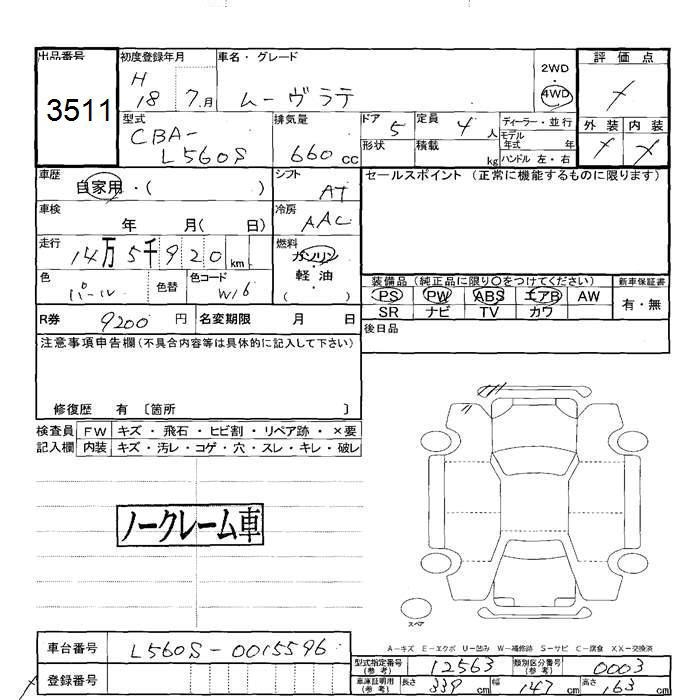 出品番号
3511
初度登録年月
H
18 7月
車名・グレード
ムーヴラテ
2WD
・
4WD
評価点
外装 内装
型式
CBA-
L560S
排気量
660 cc
ドア 5
形状
定員 4 人
積載 kg
ディーラー・並行
モデル
年式 年
ハンドル 左・右
車歴
自家用・( )
シフト
AT
セールスポイント (正常に機能するものに限ります)
車検
年 月( 日)
冷房
AAC
走行
14万5千920 km
燃料
ガソリン
・
軽油
( )
色
パール
色替
色コード
W16
装備品 (純正品に限り○をつけてください)
PS PW ABS エアB AW
SR ナビ TV カワ
新車保証書
有・無
R券 9200 円
名変期限 月 日
後日品
注意事項申告欄(不具合内容等は具体的に記入して下さい)
修復歴 有 〔箇所 〕
検査員
記入欄
FW キズ・飛石・ヒビ割・リペア跡・×要
内装 キズ・汚レ・コゲ・穴・スレ・キレ・破レ
ノークレーム車
スペア
A-キズ E-エクボ U-凹み W-補修跡 S-サビ C-腐食 XX-交換済
車台番号 L560S-0015596
登録番号
型式指定番号
(参考)
12563
類別区分番号
(参考)
0003
車庫証明用
(参考)
長さ 339 cm
幅 147 cm
高さ 163 cm